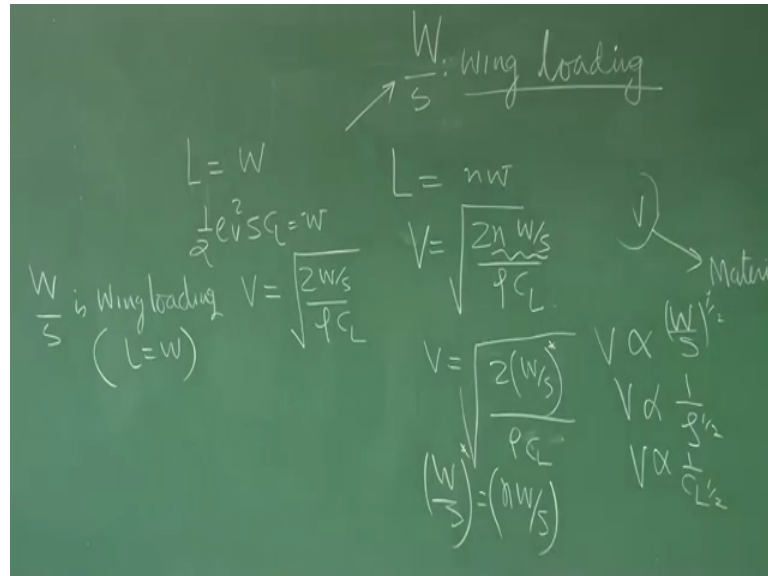 W/S : wing loading
L = W
½ρV²SC_L = W
W/S is wing loading
(L=W)
V = √(2W/S / ρC_L)
L = nW
V = √(2n W/S / ρC_L)
V = √(2(W/S)* / ρC_L)
(W/S)* = (nW/S)
V
Materi
V ∝ (W/S)^1/2
V ∝ 1/ρ^1/2
V ∝ 1/C_L^1/2